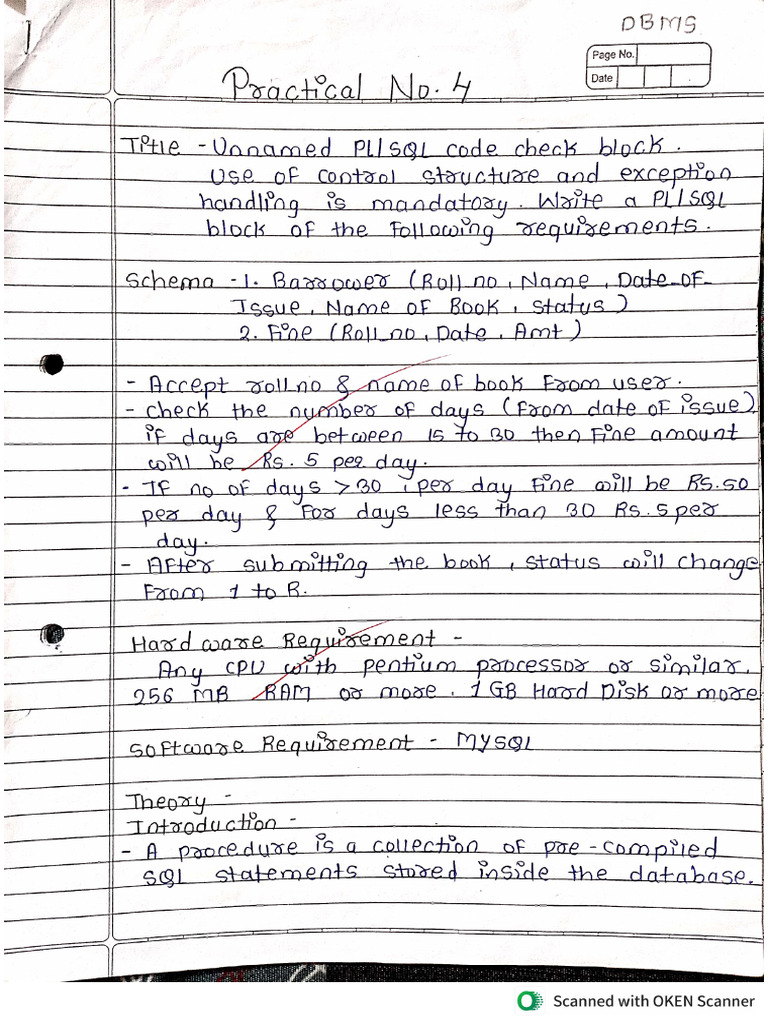 DBMS
Page No.
Date
Practical No. 4
Title - Unnamed PL/SQL code check block.
Use of control structure and exception
handling is mandatory. Write a PL/SQL
block of the following requirements.
Schema - 1. Barrower (Roll no, Name, Date_of_
Issue, Name of Book, Status)
2. Fine (Roll_no, Date, Amt)
- Accept roll no & name of book from user.
- Check the number of days (from date of issue)
if days are between 15 to 30 then fine amount
will be Rs. 5 per day.
- If no of days > 30, per day fine will be RS. 50
per day & for days less than 30 Rs. 5 per
day.
- After submitting the book, status will change
from 1 to R.
Hardware Requirement -
Any CPU with pentium processor or similar,
256 MB RAM or more. 1 GB Hard Disk or more
Software Requirement - MYSQL
Theory -
Introduction -
- A procedure is a collection of pre-compiled
SQL statements stored inside the database.
Scanned with OKEN Scanner